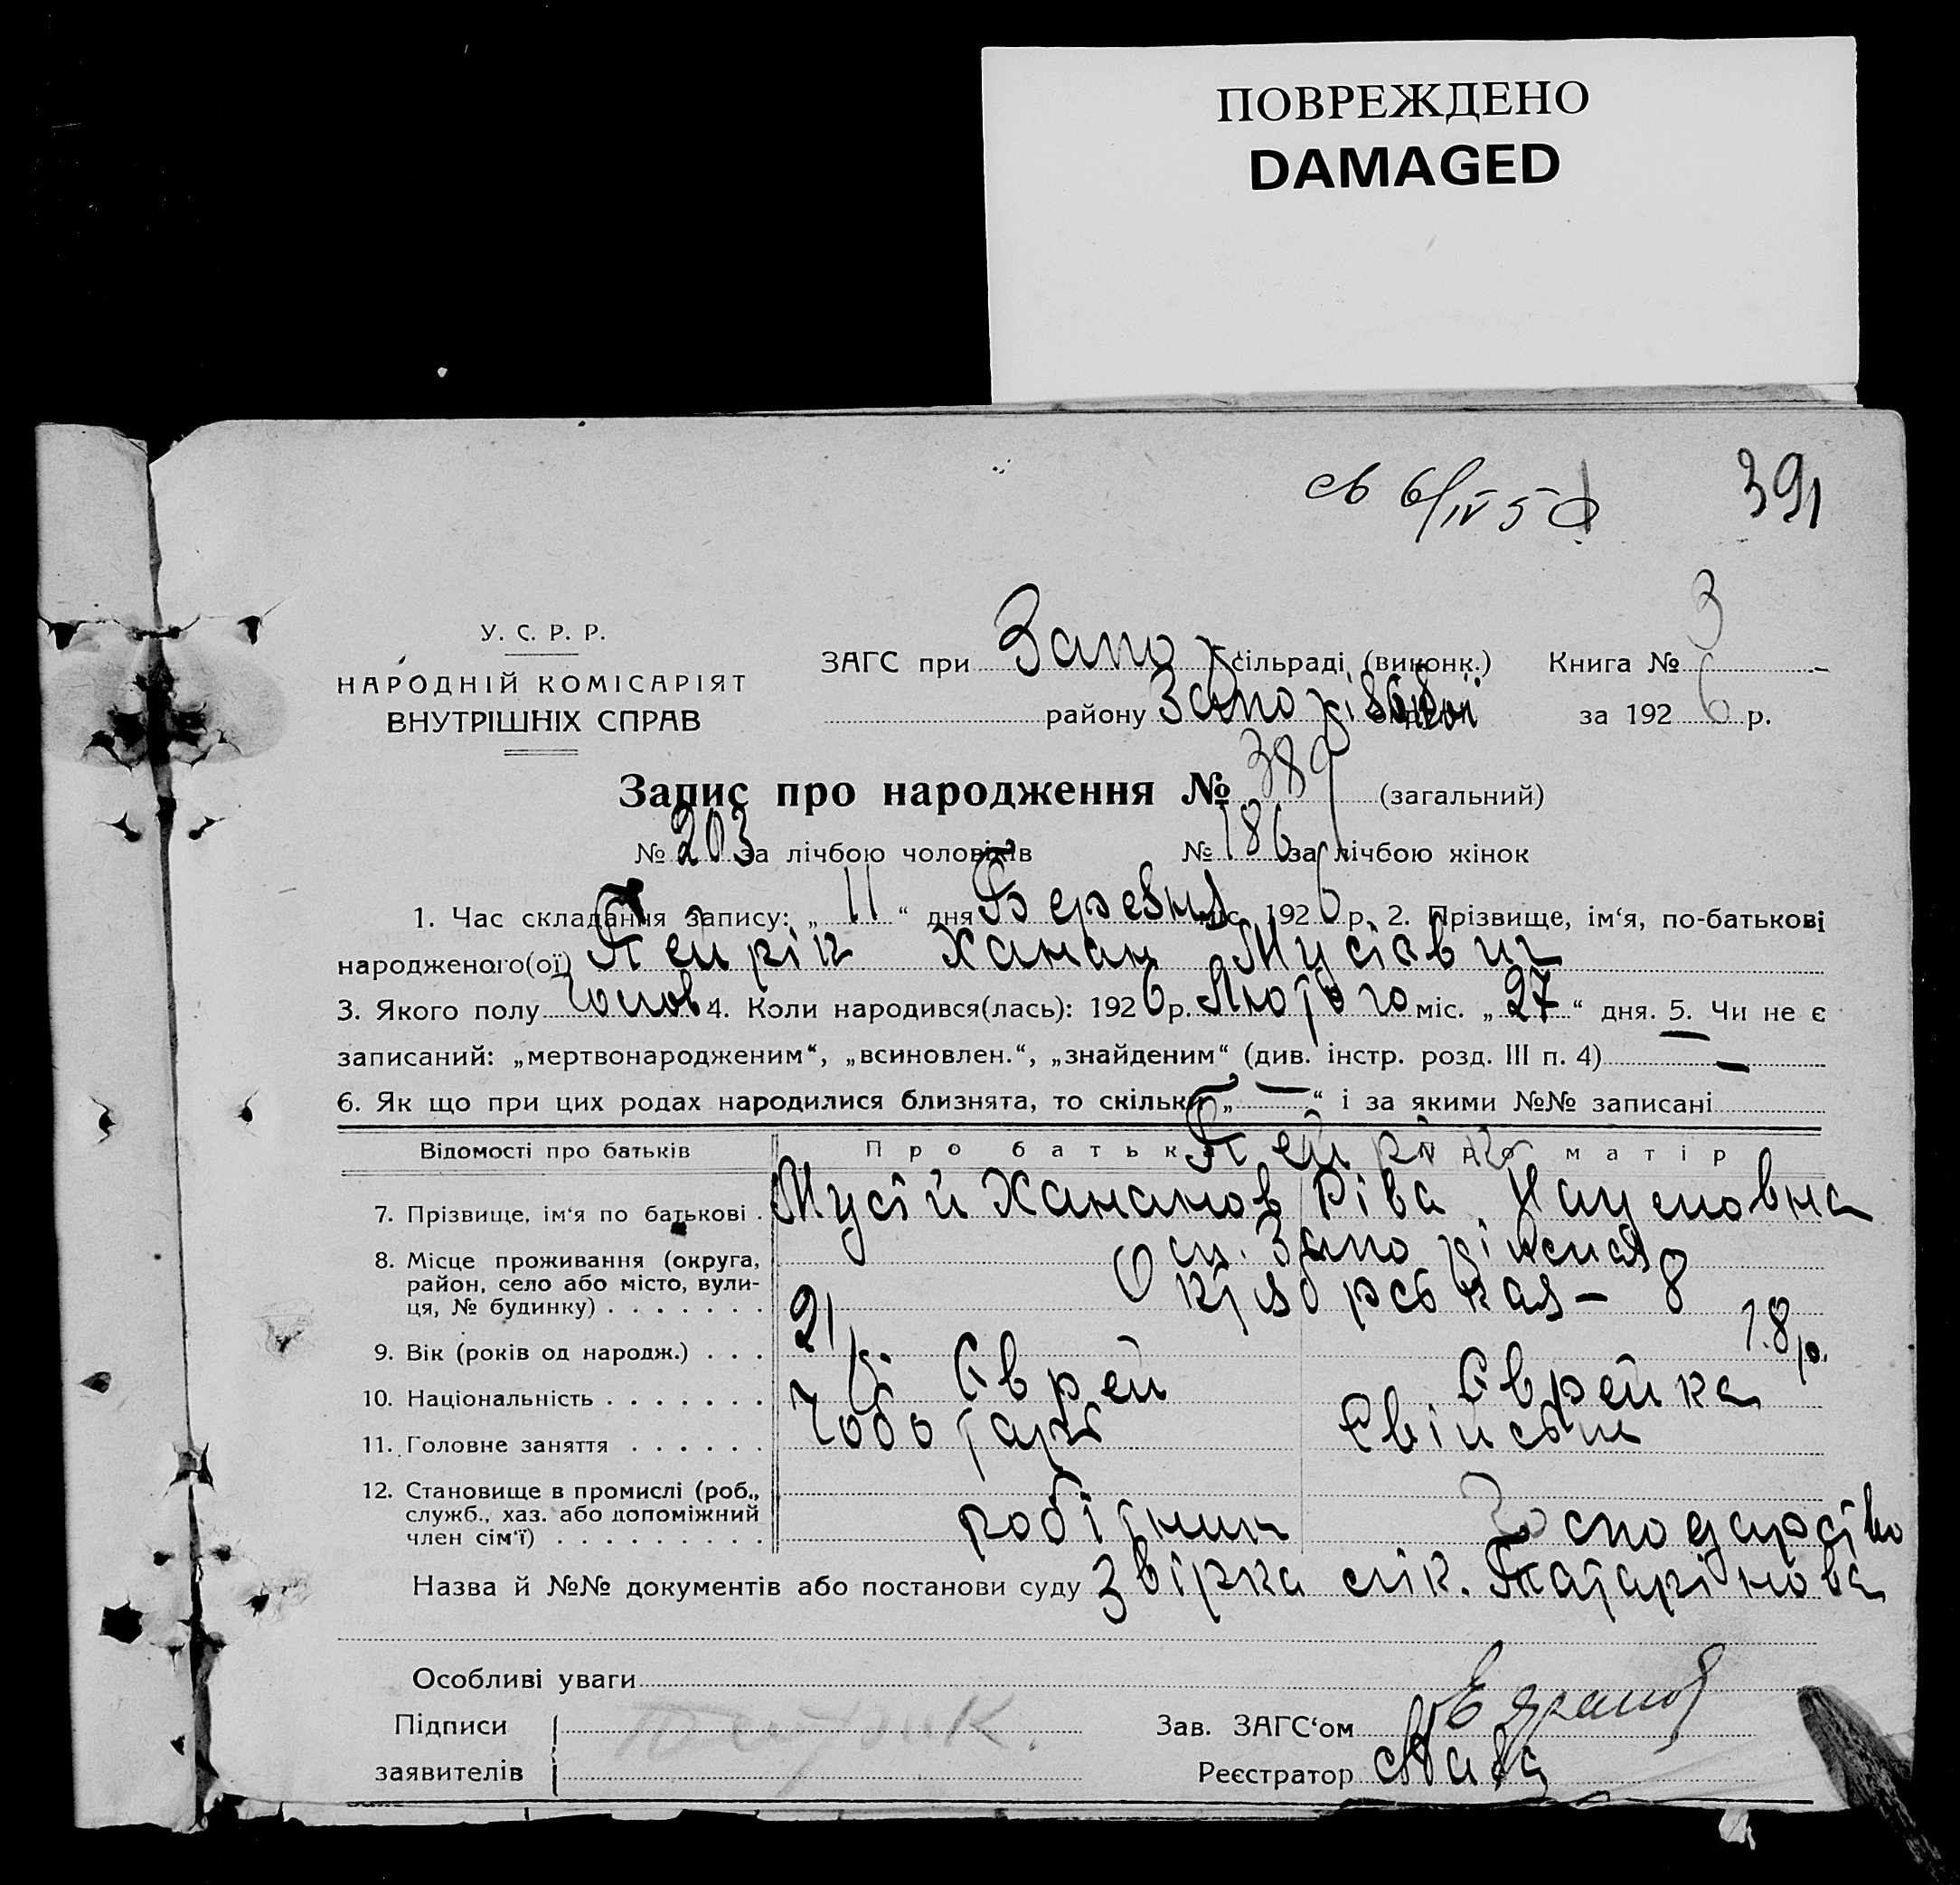 ПОВРЕЖДЕНО
DAMAGED
391
У. С. Р. Р.
НАРОДНІЙ КОМІСАРІЯТ
ВНУТРІШНІХ СПРАВ
ЗАГС при Запор сільраді (виконк.) Книга № 3
району Запоріз за 1926 р.
Запис про народження № 389 (загальний)
№ 203 за лічбою чоловіків № 186 за лічбою жінок
1. Час складання запису: „ 11 “ дня Березня міс. 1926 р. 2. Прізвище, ім‘я, по-батькові
народженого(ої) Пейрік Ханан Мусієвич
3. Якого полу Чолов 4. Коли народився(лась): 1926 р. Лютого міс. „ 27 “ дня. 5. Чи не є
записаний: „мертвонародженим“, „всиновлен.“, „знайденим“ (див. інстр. розд. III п. 4) —
6. Як що при цих родах народилися близнята, то скільки „ — “ і за якими №№ записані
Відомості про батьків Про батька Про матір
Пейрік
7. Прізвище, ім‘я по батькові . Мусій Хананов Ріва Наумовна
8. Місце проживання (округа,
район, село або місто, вули-
ця, № будинку) . . . . . . . – 8
9. Вік (років од народж.) . . . 21 р. 18 р.
10. Національність . . . . . . . Єврей Єврейка
11. Головне заняття . . . . . . Чоботарь
12. Становище в промислі (роб.,
служб., хаз. або допоміжний
член сім‘ї) . . . . . . . . . робітник Господарство
Назва й №№ документів або постанови суду Звірка лік. Татарінова
Особливі уваги
Підписи
заявителів Пейрик.
Зав. ЗАГС‘ом
Реєстратор